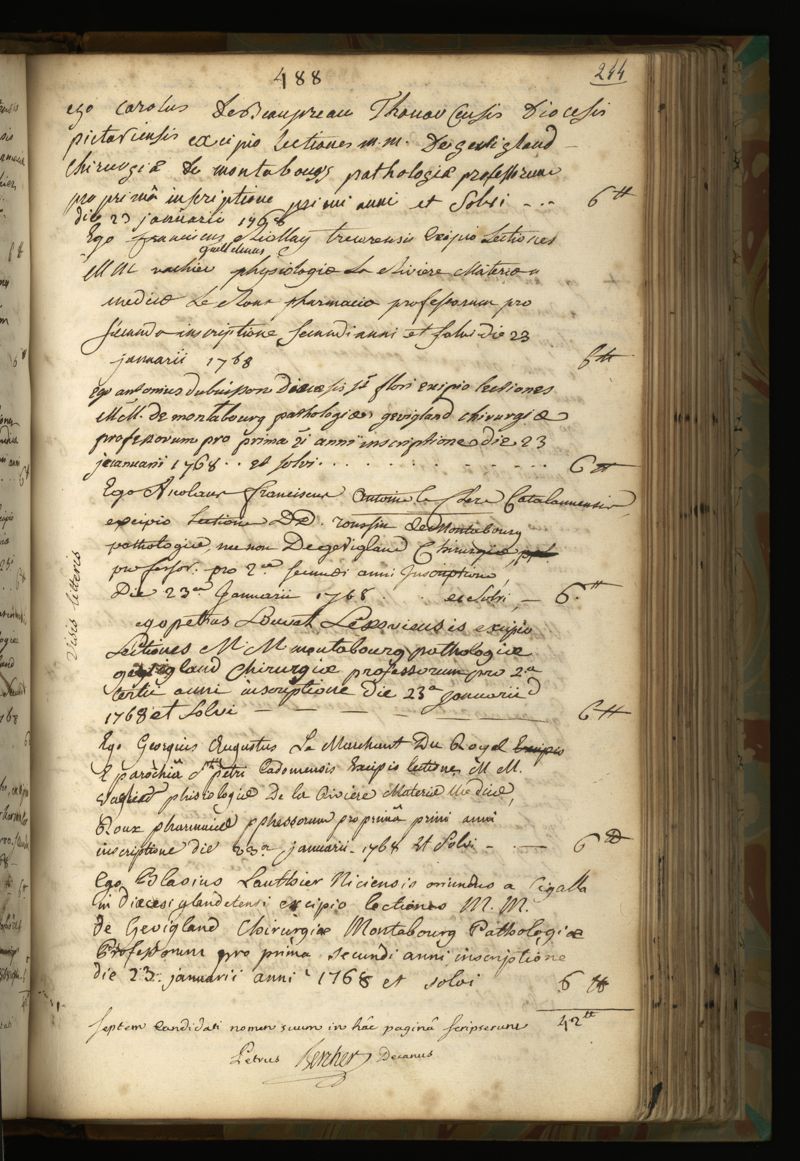 488
244
ego carolus DeBeaupreau Thouarcensis Diocesis
pictaviensis excipio lectiones m.m. De gevigland
chirurgiæ de montabourg pathologiæ professorum
pro primâ inscriptione primi anni et Solvi - - - 6 tt
die 23 januarii 1768
Ego franciscus trecorensis Excipio Lectiones
guillelmus
MM vachier physiologiæ La Riviere Materiæ
medicæ Le Roux pharmaciæ professorum pro
secunda inscriptione secundi anni et solvi die 23
januarii 1768 6 tt
Ego antonius dubuisson diœcesis sti flori excipio lectiones
MM. de montabourg pathologiæ gevigland chirurgiæ
professorum pro prima 2i anni inscriptione die 23
januarii 1768 . . et solvi . . . . . . . . 6 tt
Ego Nicolaus franciscus Antoine le Clerc Catalaunensis
excipio Lectiones DD. de Montabourg
pathologiæ, nec non De gevigland Chirurgiæ
professor. pro 2da secundi anni Inscriptione
Die 23a Januarii 1768 . et Solvi, — 6. tt
Visis litteris
ego petrus Louvet Lexoviensis excipio
Lectiones M M montabourg pathologiæ
gevigland Chirurgiæ professorum pro 2a
tertii anni inscriptione die 23a januarii
1768 et Solvi — — — — — 6 tt
Ego Georgius Augustus Le Marchant Du Royel Excipio
E parochiâ Sti petri Cadomensis Excipio lectiones M M.
Vachier phisiologiæ De la Riviere Materiæ Medicæ,
Roux pharmaciæ pphessorum pro primâ primi anni
inscriptione die 23a januarii - 1768 et Solvi - — 6 tt
Ego Blasius Lauthier Niciensis oriundus a Cigalla
in diœcesi glandetensi excipio lectiones M. M.
de Gevigland Chirurgiæ Montabourg Pathologiæ
Professorum pro prima secundi anni inscriptione
die 23. januarii anni 1768 et solvi 6 tt
Septem Candidati nomen suum in hâc paginâ scripserunt 42 tt
Petrus Bercher Decanus